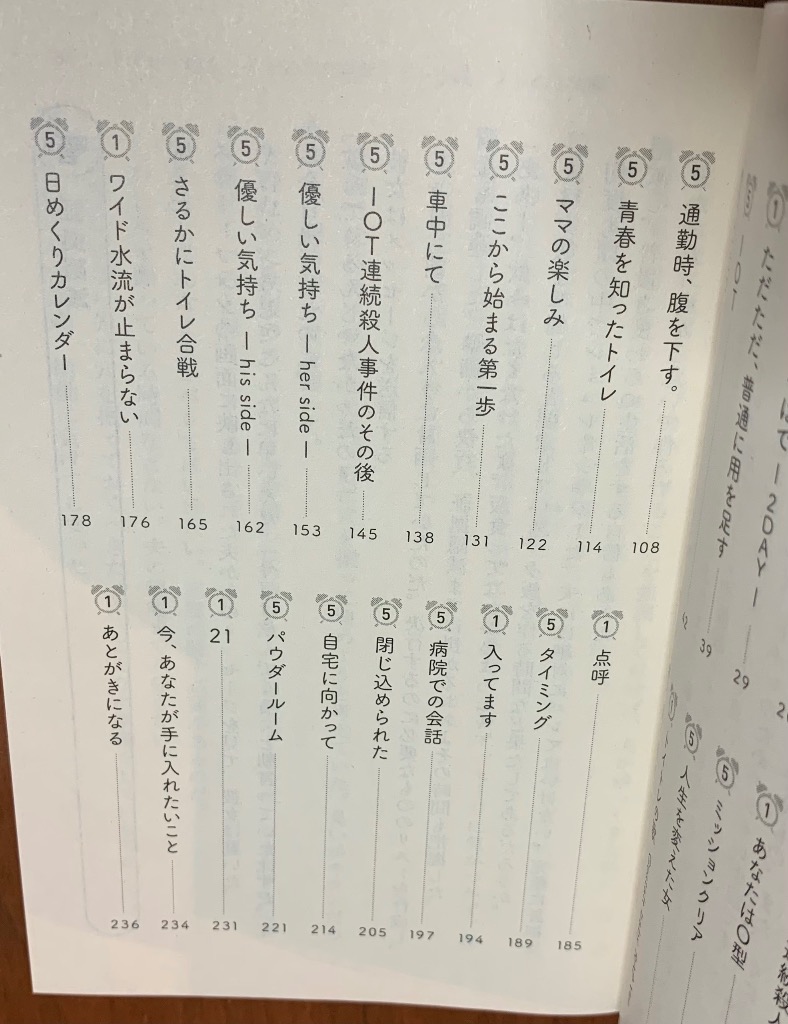 ⑤ 通勤時、腹を下す。 108
⑤ 青春を知ったトイレ 114
⑤ ママの楽しみ 122
⑤ ここから始まる第一歩 131
⑤ 車中にて 138
⑤ IOT連続殺人事件のその後 145
⑤ 優しい気持ち ― her side ― 153
⑤ 優しい気持ち ― his side ― 162
⑤ さるかにトイレ合戦 165
① ワイド水流が止まらない 176
⑤ 日めくりカレンダー 178
① 点呼 185
⑤ タイミング 189
① 入ってます 194
⑤ 病院での会話 197
⑤ 閉じ込められた 205
⑤ 自宅に向かって 214
⑤ パウダールーム 221
① 21 231
① 今、あなたが手に入れたいこと 234
① あとがきになる 236
2DAY ― 29
① ただただ、普通に用を足す 39
IOT
① あなたは〇型
⑤ ミッションクリア
⑤ 人生を変えた女